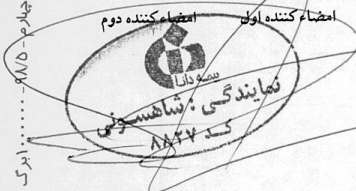 امضاء کننده اول امضاء کننده دوم
سودانا
نمایندگی : شاهسونی
کد ۸۸۲۷
چهارم - ۹۸/۵ - ۱۰۰۰۰۰ برگ